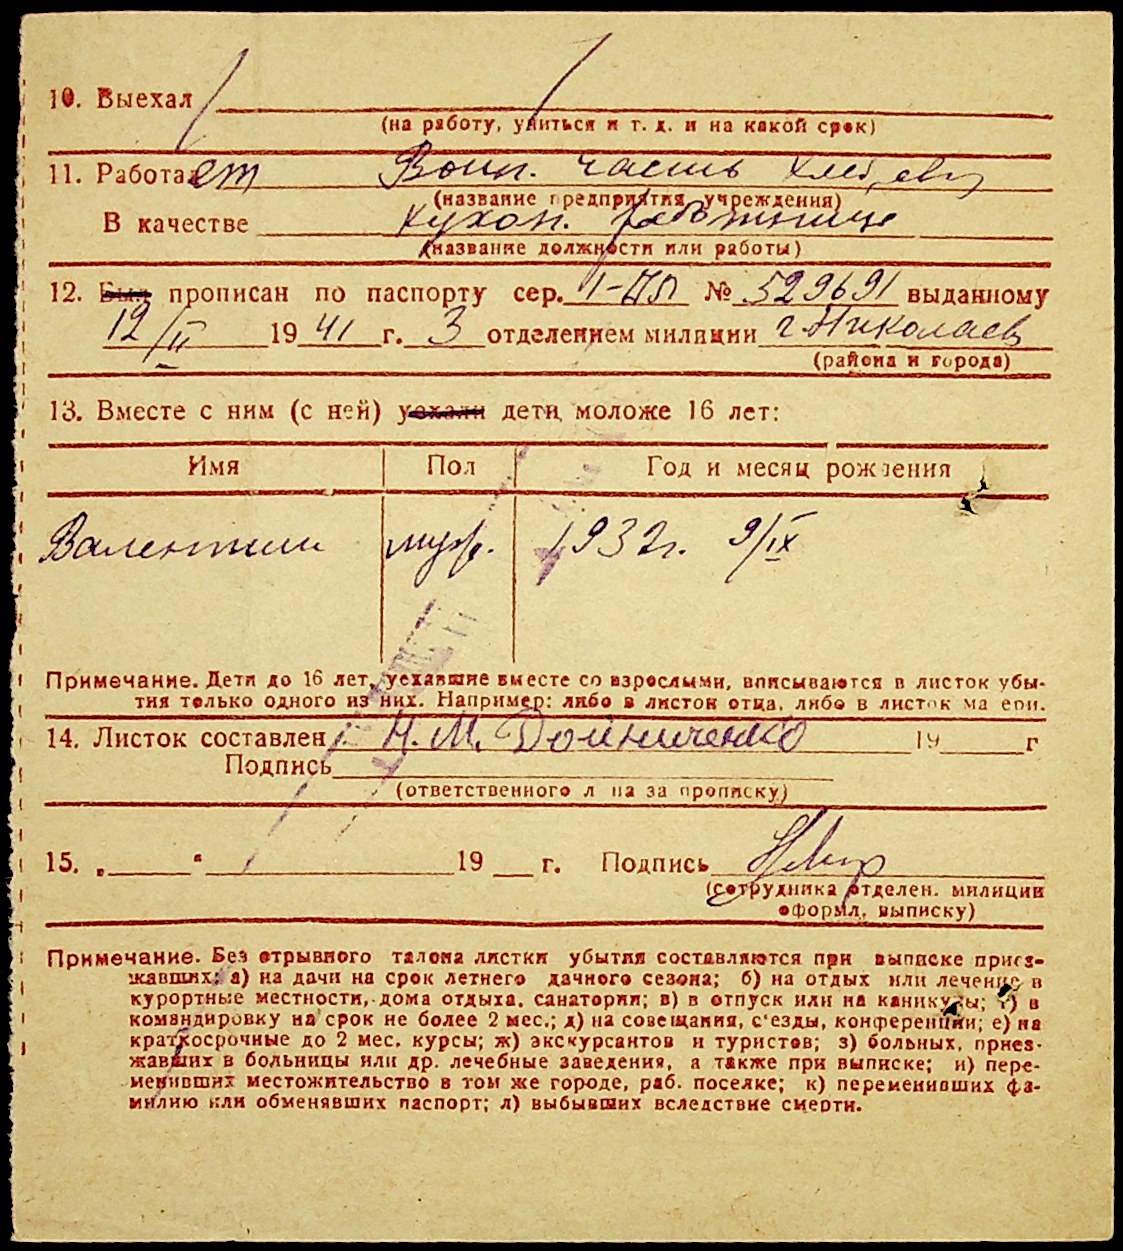 10. Выехал
(на работу, учиться и т. д. и на какой срок)
11. Работает Воин. часть
(название предприятия учреждения)
В качестве кухон. работница
(название должности или работы)
12. Был прописан по паспорту сер. № 529691 выданному
12/II 1941 г. 3 отделением милиции г. Николаев
(района и города)
13. Вместе с ним (с ней) уехали дети моложе 16 лет:
Имя Пол Год и месяц рождения
Валентин муж. 1932 г. 9/IX
Примечание. Дети до 16 лет, уехавшие вместе со взрослыми, вписываются в листок убы-
тия только одного из них. Например: либо в листок отца, либо в листок ма ери.
14. Листок составлен Н. М. Дойниченко 19 г
Подпись
(ответственного л ца за прописку)
15. „ “ 19 г. Подпись
(сотрудника отделен. милиции
оформл, выписку)
Примечание. Без отрывного талона листки убытия составляются при выписке приез-
жавших: а) на дачи на срок летнего дачного сезона; б) на отдых или лечение в
курортные местности, дома отдыха, санатории; в) в отпуск или на каникулы; г) в
командировку на срок не более 2 мес.; д) на совещания, с'езды, конференции; е) на
краткосрочные до 2 мес. курсы; ж) экскурсантов и туристов; з) больных, приез-
жавших в больницы или др. лечебные заведения, а также при выписке; и) пере-
менивших местожительство в том же городе, раб. поселке; к) переменивших фа-
милию или обменявших паспорт; л) выбывших вследствие смерти.